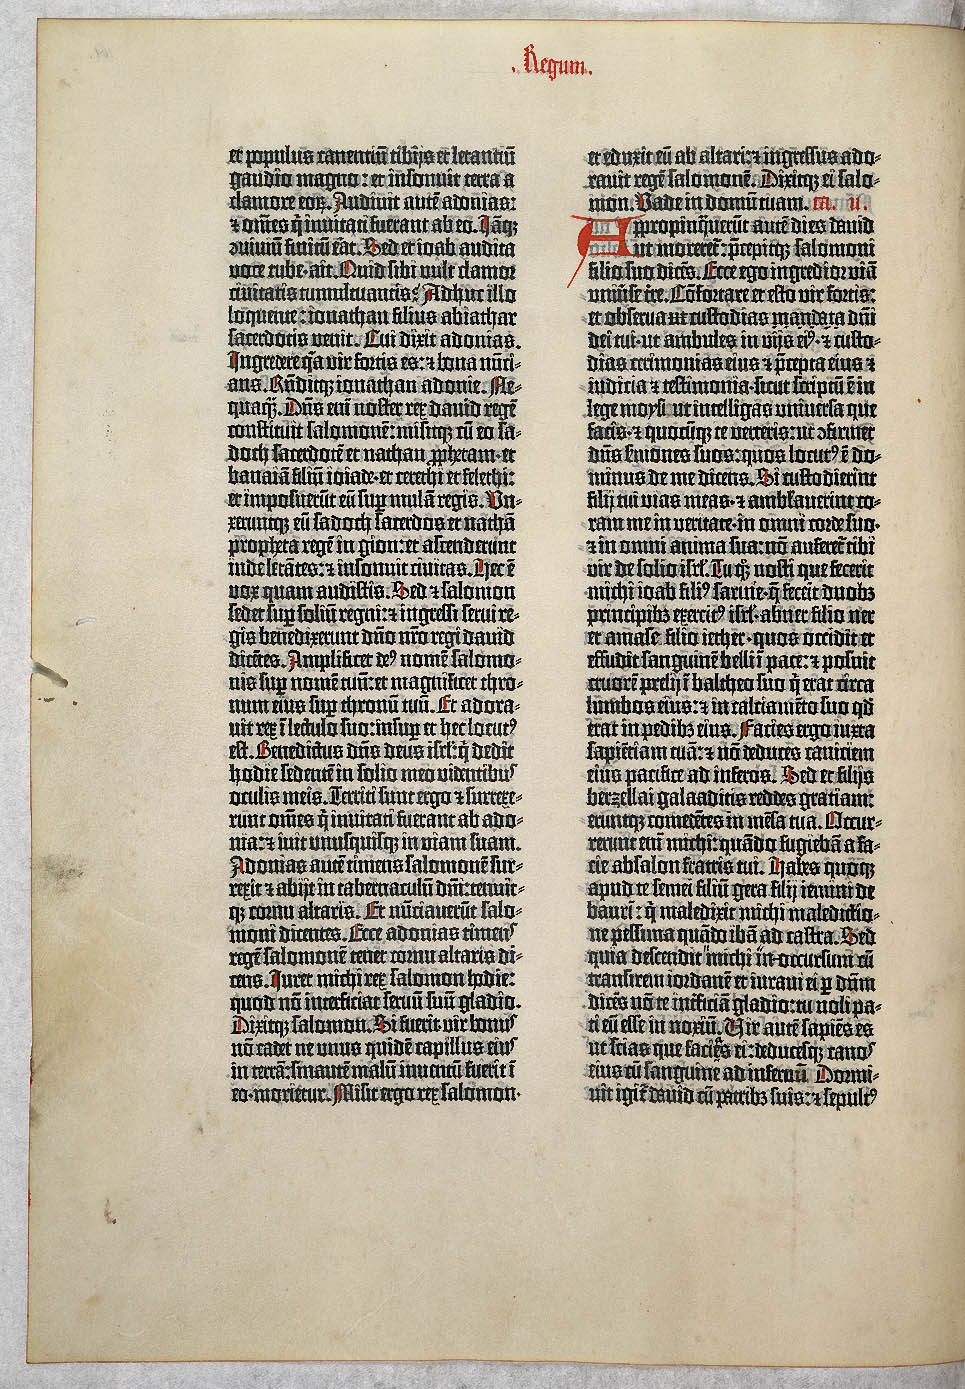 . Regum .
et populus canentiū tibijs et letantiū
gaudio magno : et insonuit terra a
clamore eoꝝ. Audivit autē adonias :
⁊ om̄es q̇ invitati fuerant ab eo. Jāqꝫ
ↄviviuȝ finitū erat. Sed et ioab audita
voce tube · ait. Quid sibi vult clamor
civitatis tumultuantis : Adhuc illo
loquente : ionathan filius abiathar
sacerdotis venit. Cui dixit adonias.
Ingredere q̄a vir fortis es : ⁊ bona nūci-
ans. Rn̄ditqꝫ ionathan adonie. Ne-
quaq̄. Dn̄s eni noster rex david regē
constituit salomonē : misitqꝫ cū eo sa-
doch sacerdotē et nathan ꝓphetam · et
banaiā filiū ioiade · et cerethi et felethi :
et imposuerūt eū suꝑ mulā regis. Vn-
xeruntqꝫ eū sadoch sacerdos et nathā
propheta regē in gion : et ascenderunt
inde letātes : ⁊ insonuit civitas. Hec ē
vox quam audistis. Sed ⁊ salomon
sedet suꝑ soliū regni : ⁊ ingressi servi re-
gis benedixerunt dn̄o nr̄o regi david
dicētes. Amplificet deꝰ nomē salomo-
nis suꝑ nomē tuū : et magnificet thro-
num eius suꝑ thronū tuū. Et adora-
vit rex ī lectulo suo : insuꝑ et hec locutꝰ
est. Benedictus dn̄s deus isrl̄ : q̇ dedit
hodie sedentē in solio meo videntibuꝰ
oculis meis. Territi sunt ergo ⁊ surrexe-
runt om̄es q̇ invitati fuerant ab ado-
nia : ⁊ ivit unusquisqꝫ in viam suam.
Adonias autē timens salomonē sur-
rexit ⁊ abijt in tabernaculū dn̄i : tenuit-
qꝫ cornu altaris. Et nūciaverūt salo-
moni dicentes. Ecce adonias timenꝰ
regē salomonē tenet cornu altaris di-
cens. Juret michi rex salomon hodie :
quod nō interficiat servū suū gladio.
Dixitqꝫ salomon. Si fuerit vir bonuꝰ
nō cadet ne unus quidē capillus eiuꝰ
in terrā : sin autē malū inventū fuerit ī
eo · morietur. Misit ergo rex salomon ·
et eduxit eū ab altari : ⁊ ingressus ado-
ravit regē salomonē. Dixitqꝫ ei salo-
mon. Vade in domū tuam. ca. ii.
Appropinq̄verūt autē dies david
ut moreret̄ : p̄cepitqꝫ salomoni
filio suo dicēs. Ecce ego ingredior viā
univ̄se tr̄e. Cōfortare et esto vir fortis :
et observa ut custodias mandata dn̄i
dei tui · ut ambules in vijs eiꝰ · ⁊ custo-
dias cerimonias eius ⁊ p̄cepta eius ⁊
iudicia ⁊ testimonia · sicut scriptū ē in
lege moysi ut intelligas universa que
facis · ⁊ quocūqꝫ te verteris : ut ↄfirmet
dn̄s s̄mones suos : quos locutꝰ ē do-
minus de me dicens. Si custodierint
filij tui vias meas · ⁊ ambulaverint co-
ram me in veritate · in omni corde suo ·
⁊ in omni anima sua : nō auferet̄ tibi
vir de solio isrl̄. Tu qꝫ nosti que fecerit
michi ioab filiꝰ sarvie · q̄ fecerit duobꝫ
principibꝫ exercitꝰ isrl̄ · abner filio ner
et amase filio iether · quos occidit et
effudit sanguinē belli ī pace : ⁊ posuit
cruorē prelij ī baltheo suo q̇ erat circa
lumbos eius : ⁊ in calciamēto suo qd̄
erat in pedibꝫ eius. Facies ergo iuxta
sapiētiam tuā : ⁊ nō deduces caniciem
eius pacifice ad inferos. Sed et filijs
berzellai galaaditis reddes gratiam :
eruntqꝫ comedētes in mēsa tua. Occur-
rerunt eni michi : quādo fugiebā a fa-
cie absalon fratris tui. Habes quoqꝫ
apud te semei filiū gera filij iemini de
baurī : q̇ maledixit michi maledictio-
ne pessima quādo ibā ad castra. Sed
quia descendit michi in occursum cū
transirem iordanē et iuravi ei ꝑ dn̄m
dicēs nō te īt̄ficiā gladio : tu noli pa-
ti eū esse innoxiū. Vir autē sapiēs es
ut scias que facies ei : deducesqꝫ canoꝰ
eius cū sanguine ad infernū. Dormi-
vit igit̄ david cū patribꝫ suis : ⁊ sepultꝰ